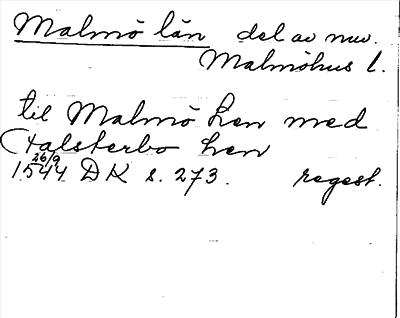 Malmö län del av nuv.
Malmöhus l.
til Malmö Len med
Falsterbo Len
26/9
1544 DK s. 273. regest.